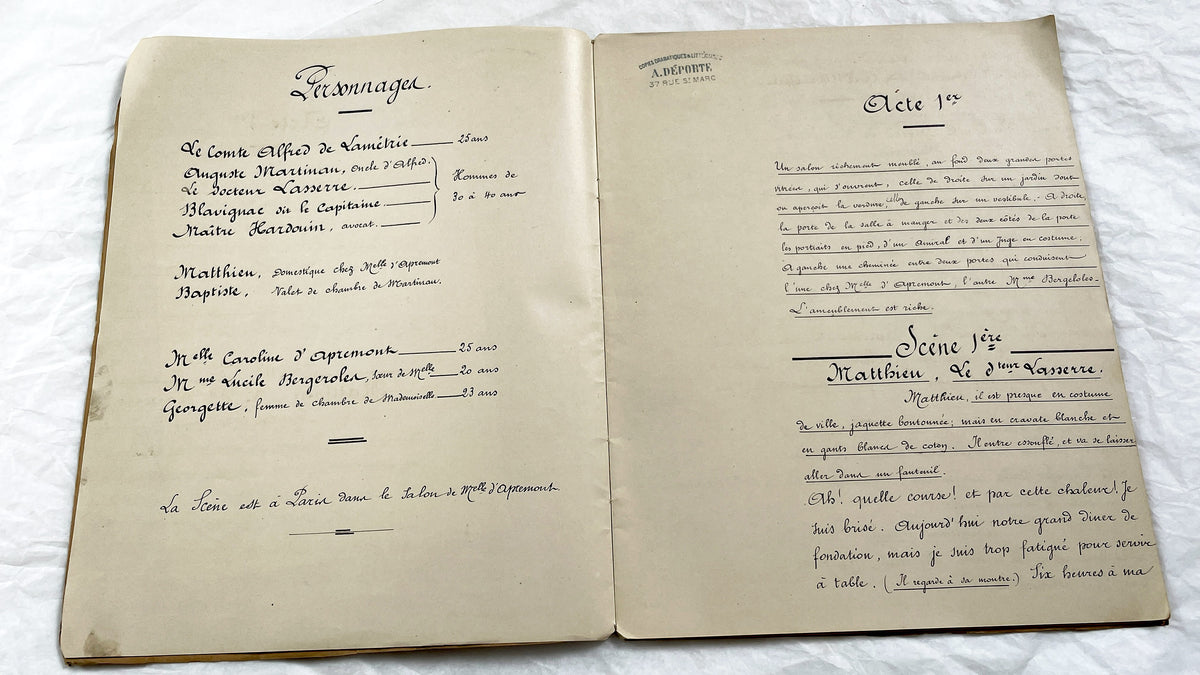 Personnages.
Le Comte Alfred de Lamétrie 25 ans
Auguste Martinau, oncle d'Alfred.
Le Docteur Lasserre.
Blavignac dit le Capitaine.
Maître Hardouin, avocat.
Hommes de
30 à 40 ans
Matthieu, Domestique chez Melle d'Apremont
Baptiste, Valet de chambre de Martinau.
Melle Caroline d'Apremont 25 ans
Mme Lucile Bergeroles, sœur de Melle 20 ans
Georgette, femme de chambre de Mademoiselle 23 ans
La Scène est à Paris dans le Salon de Melle d'Apremont
COPIES DRAMATIQUES & LITTÉRAIRES
A. DÉPORTE
37 RUE ST MARC
Acte 1er
Un salon richement meublé, au fond deux grandes portes
vitrées, qui s'ouvrent, celle de droite sur un jardin dont
on aperçoit la verdure, celle de gauche sur un vestibule. A droite,
la porte de la salle à manger et des deux côtés de la porte
les portraits en pied, d'un Amiral et d'un Juge en costume.
A gauche une cheminée entre deux portes qui conduisent
l'une chez Melle d'Apremont, l'autre Mme Bergeloles-
L'ameublement est riche.
Scène 1ère
Matthieu, Le Dteur Lasserre.
Matthieu, il est presque en costume
de ville, jaquette boutonnée; mais en cravate blanche et
en gants blancs de coton. Il entre essoufflé, et va se laisser
aller dans un fauteuil.
Ah! quelle course! et par cette chaleur! Je
suis brisé. Aujourd'hui notre grand diner de
fondation, mais je suis trop fatigué pour servir
à table. (Il regarde à sa montre.) Six heures à ma